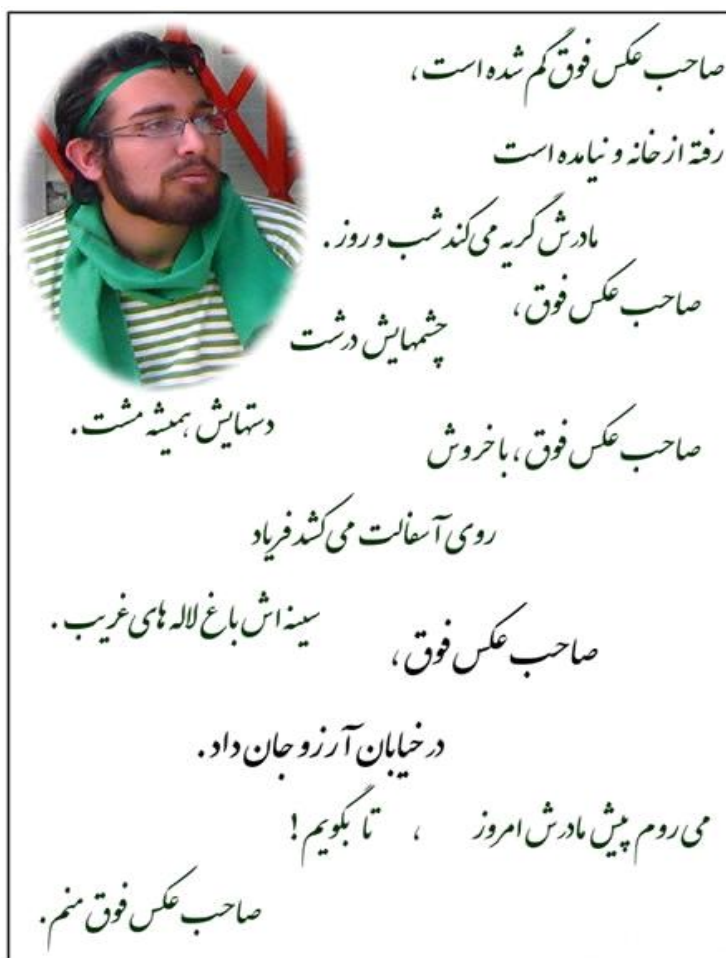 صاحب عکس فوق گم شده است ،
رفته از خانه و نیامده است
مادرش گریه می‌کند شب و روز .
صاحب عکس فوق ،
چشمهایش درشت
دستهایش همیشه مشت .
صاحب عکس فوق ، با خروش
روی آسفالت می‌کشد فریاد
سینه اش باغ لاله های غریب .
صاحب عکس فوق ،
در خیابان آرزو جان داد .
می روم پیش مادرش امروز ، تا بگویم !
صاحب عکس فوق منم .